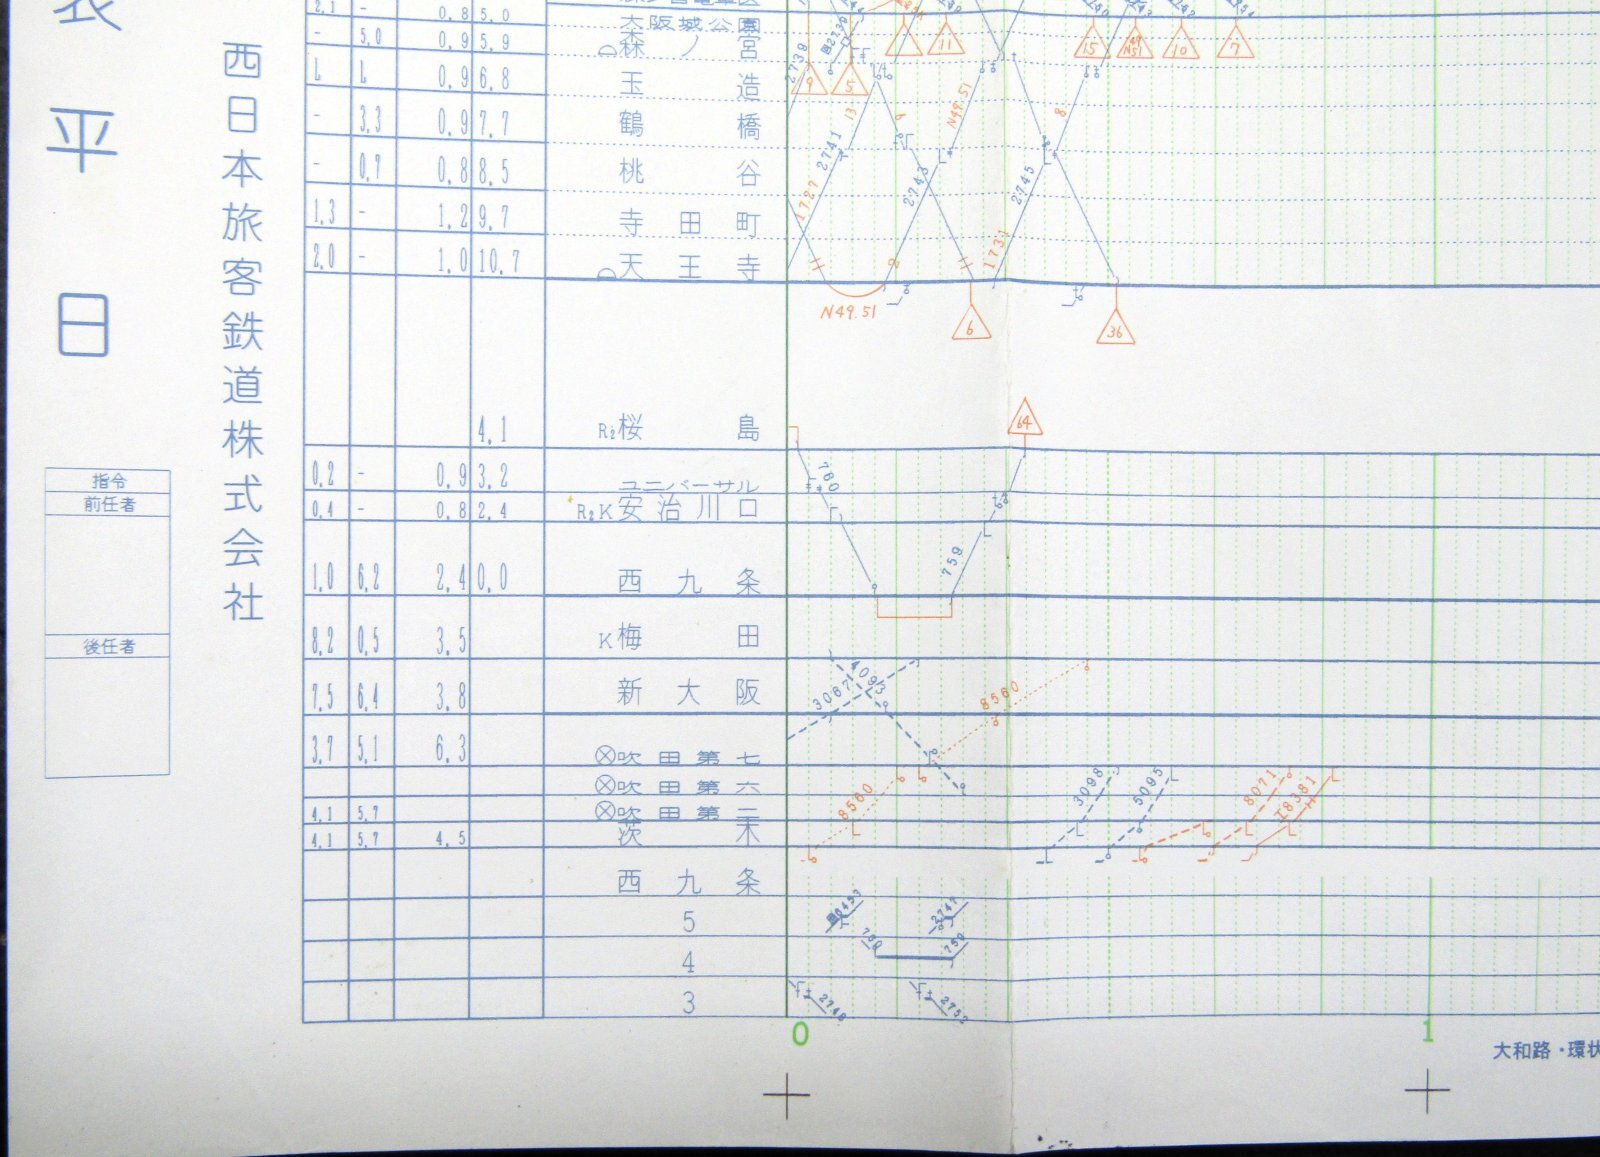 平日
西日本旅客鉄道株式会社
指令
前任者
後任者
2.1 - 0.8 5.0 大阪城公園
- 5.0 0.9 5.9 森ノ宮
L L 0.9 6.8 玉造
- 3.3 0.9 7.7 鶴橋
- 0.7 0.8 8.5 桃谷
1.3 - 1.2 9.7 寺田町
2.0 - 1.0 10.7 天王寺
4.1 R2桜島
0.2 - 0.9 3.2 ユニバーサル
0.4 - 0.8 2.4 R2K安治川口
1.0 6.2 2.4 0.0 西九条
8.2 0.5 3.5 K梅田
7.5 6.4 3.8 新大阪
3.7 5.1 6.3 吹田第七
吹田第六
4.1 5.7 吹田第二
4.1 5.7 4.5 茨木
西九条
5
4
3
2739
9
5
11
15
N51
10
7
2741
13
1727
6
N49.51
2743
2
8
2745
1731
N49.51
6
36
64
780
759
3067
4093
8560
8560
3098
5095
8071
I8381
2747
780
759
2748
2752
0
1
大和路・環状